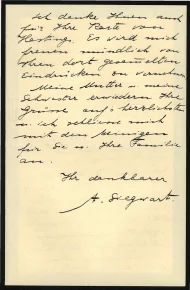 Ich danke Ihnen auch
für Ihre Karte vom
Hasting. Es wird mich
freuen mündlich von
Ihren dort gesammelten
Eindrücken zu vernehmen
Meine Mutter u. meine
Schwester erwidern Ihre
Grüsse aufs herzlichste
u. ich schliesse mich
mit den meinigen
für Sie u. Ihre Familie
an.
Ihr dankbarer
A. Siegwart